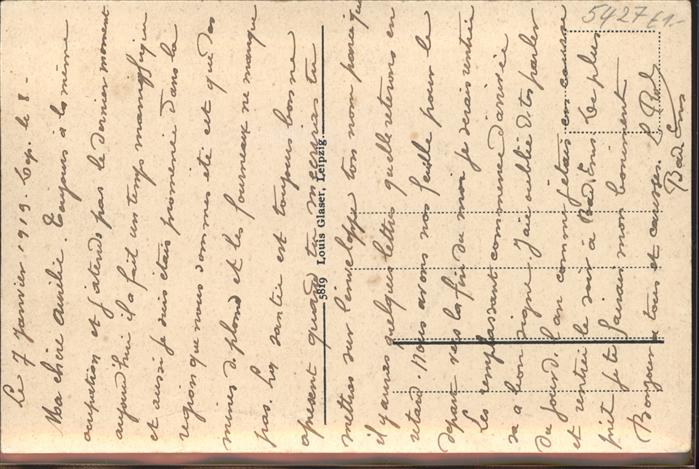 Le 7 Janvier 1919. Rep. le 8 -
Ma chère Amélie. Toujours à la même
occupation et j'attends pas le dernier moment
aujourd'hui il a fait un temps magnifique
et aussi je suis étais promenée dans la
région que nous sommes été et que des
mines de plomd et les fourneaux ne manque
pas. La santée est toujours bonne
apresent quand tu m'ecriras tu
mettras sur l'enveloppe ton nom parce que
il y aures quelques lettres quelle reterons en
retard. Nous avons nos feuille pour le
depart vers la fin du mois je serais rentrée
les remplassant commence d'arrivée
sa a bon signe. J'aie oublié de tes parler
du jour d. l'an comme j'étais en course
et rentrée le soir à Bad. Ems. Le plus
pret je te ferais mon boniment
Bonjour a tous et causer. P. Paul
Bad Ems
5819 Louis Glaser, Leipzig.
5427 £1.-